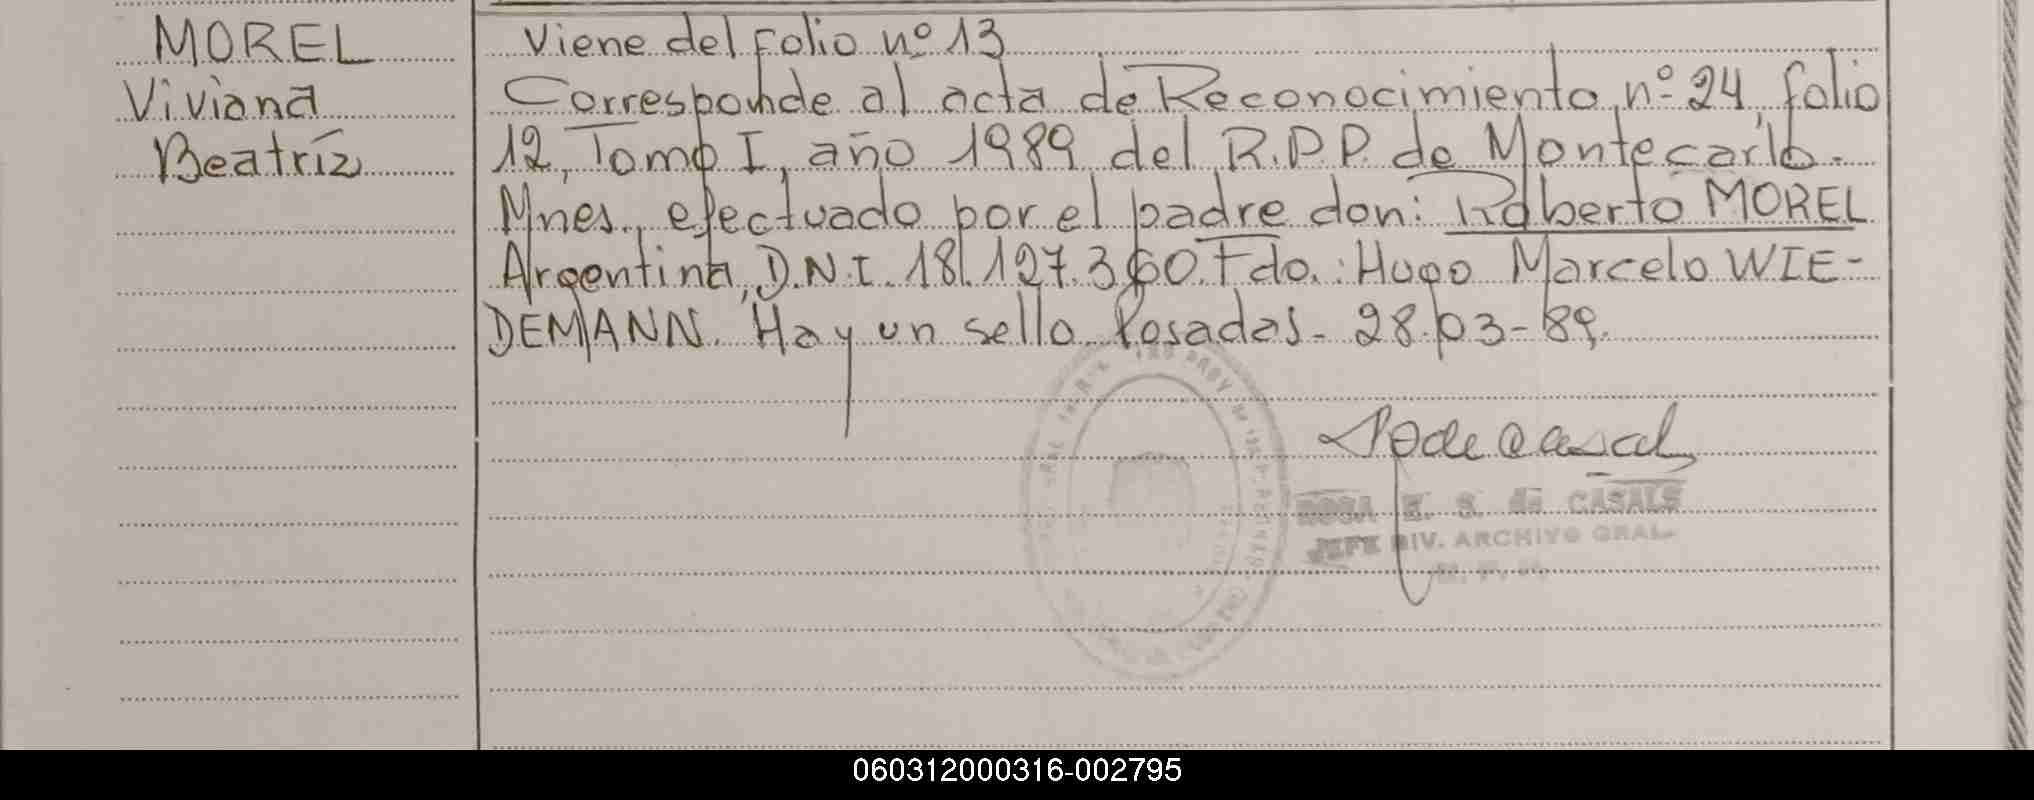 MOREL
Viviana
Beatríz
Viene del Folio nº 13
Corresponde al acta de Reconocimiento nº 24, folio
12, Tomo I, año 1989 del R.P.P. de Montecarlo.
Mnes., efectuado por el padre don: Roberto MOREL
Argentina, D.N.I. 18.127.360. Fdo.: Hugo Marcelo WIE-
DEMANN. Hay un sello Posadas - 28-03-89.
ROSA E. S. de CASALS
JEFE DIV. ARCHIVO GRAL.
060312000316-002795